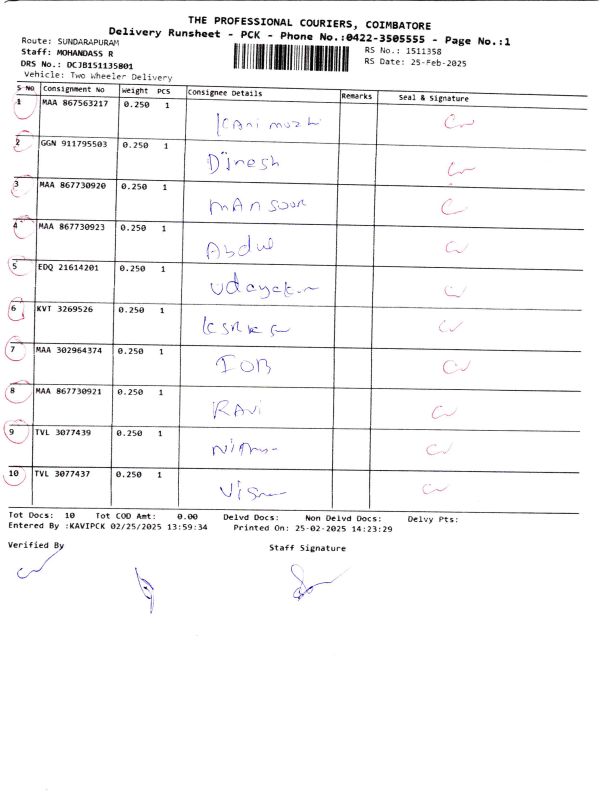 THE PROFESSIONAL COURIERS, COIMBATORE
Delivery Runsheet - PCK - Phone No.:0422-3505555 - Page No.:1
Route: SUNDARAPURAM
Staff: MOHANDASS R
DRS No.: DCJB151135801
Vehicle: Two Wheeler Delivery
RS No.: 1511358
RS Date: 25-Feb-2025
S No Consignment No Weight PCS Consignee Details Remarks Seal & Signature
1 MAA 867563217 0.250 1 Kanimozhi
2 GGN 911795503 0.250 1 Dinesh
3 MAA 867730920 0.250 1 mAnsoor
4 MAA 867730923 0.250 1 Abdul
5 EDQ 21614201 0.250 1
6 KVT 3269526 0.250 1
7 MAA 302964374 0.250 1 IOB
8 MAA 867730921 0.250 1 RAVi
9 TVL 3077439 0.250 1
10 TVL 3077437 0.250 1
Tot Docs: 10 Tot COD Amt: 0.00 Delvd Docs: Non Delvd Docs: Delvy Pts:
Entered By :KAVIPCK 02/25/2025 13:59:34 Printed On: 25-02-2025 14:23:29
Verified By Staff Signature